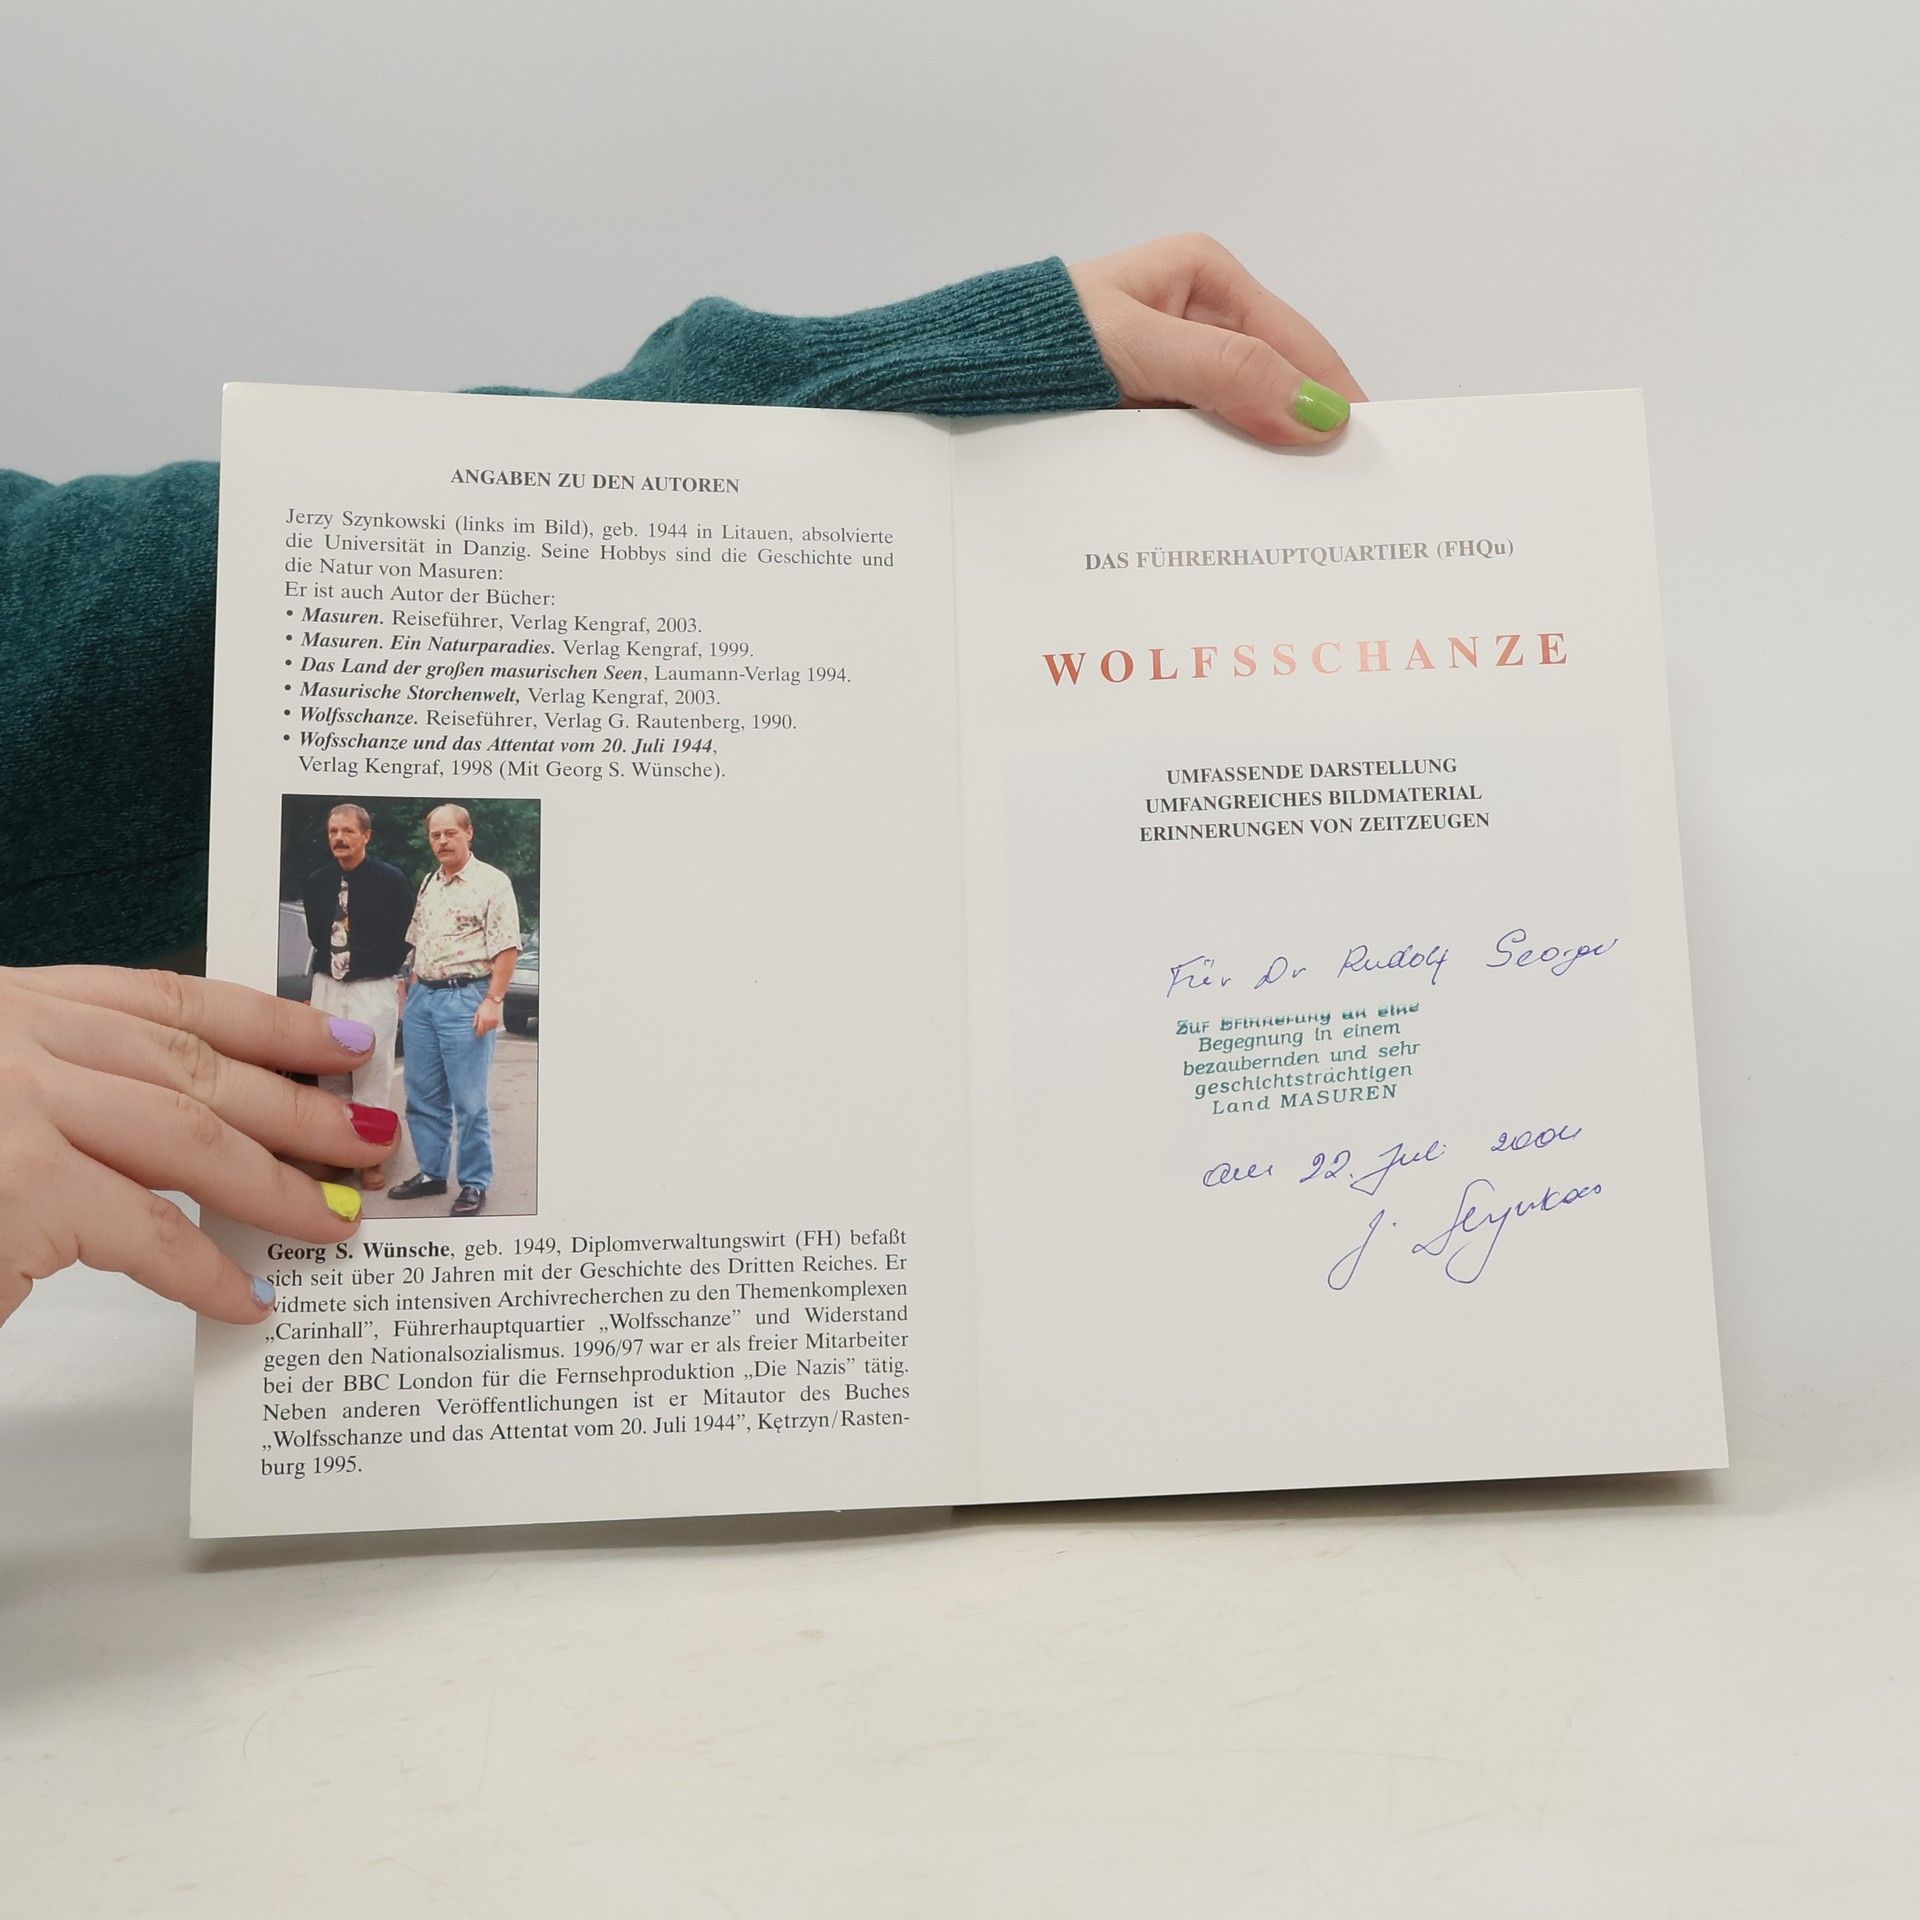 ANGABEN ZU DEN AUTOREN
Jerzy Szynkowski (links im Bild), geb. 1944 in Litauen, absolvierte
die Universität in Danzig. Seine Hobbys sind die Geschichte und
die Natur von Masuren:
Er ist auch Autor der Bücher:
• Masuren. Reiseführer, Verlag Kengraf, 2003.
• Masuren. Ein Naturparadies. Verlag Kengraf, 1999.
• Das Land der großen masurischen Seen, Laumann-Verlag 1994.
• Masurische Storchenwelt, Verlag Kengraf, 2003.
• Wolfsschanze. Reiseführer, Verlag G. Rautenberg, 1990.
• Wofsschanze und das Attentat vom 20. Juli 1944,
Verlag Kengraf, 1998 (Mit Georg S. Wünsche).
Georg S. Wünsche, geb. 1949, Diplomverwaltungswirt (FH) befaßt
sich seit über 20 Jahren mit der Geschichte des Dritten Reiches. Er
widmete sich intensiven Archivrecherchen zu den Themenkomplexen
„Carinhall”, Führerhauptquartier „Wolfsschanze” und Widerstand
gegen den Nationalsozialismus. 1996/97 war er als freier Mitarbeiter
bei der BBC London für die Fernsehproduktion „Die Nazis” tätig.
Neben anderen Veröffentlichungen ist er Mitautor des Buches
„Wolfsschanze und das Attentat vom 20. Juli 1944”, Kętrzyn/Rasten-
burg 1995.
DAS FÜHRERHAUPTQUARTIER (FHQu)
WOLFSSCHANZE
UMFASSENDE DARSTELLUNG
UMFANGREICHES BILDMATERIAL
ERINNERUNGEN VON ZEITZEUGEN
Für Dr Rudolf
Zur Erinnerung an eine
Begegnung in einem
bezaubernden und sehr
geschichtsträchtigen
Land MASUREN
am 22. Juli
J.